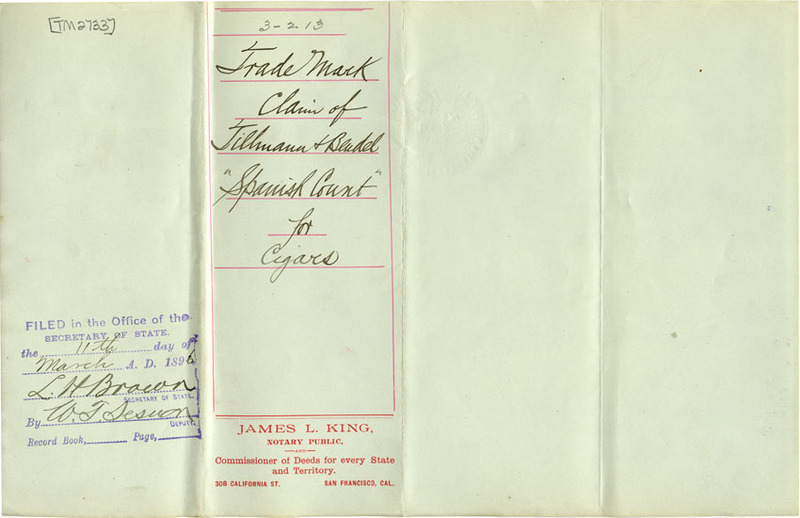 [TM2733]
3-213
Trade Mark
Claim of
Tillmann & Bendel
"Spanish Count"
for
Cigars
FILED in the Office of the
SECRETARY OF STATE.
the 11th day of
March A. D. 1896
L. H. Brown
SECRETARY OF STATE.
By W. T. Sesnon
DEPUTY.
Record Book, Page,
JAMES L. KING,
NOTARY PUBLIC,
—AND—
Commissioner of Deeds for every State
and Territory.
308 CALIFORNIA ST. SAN FRANCISCO, CAL.